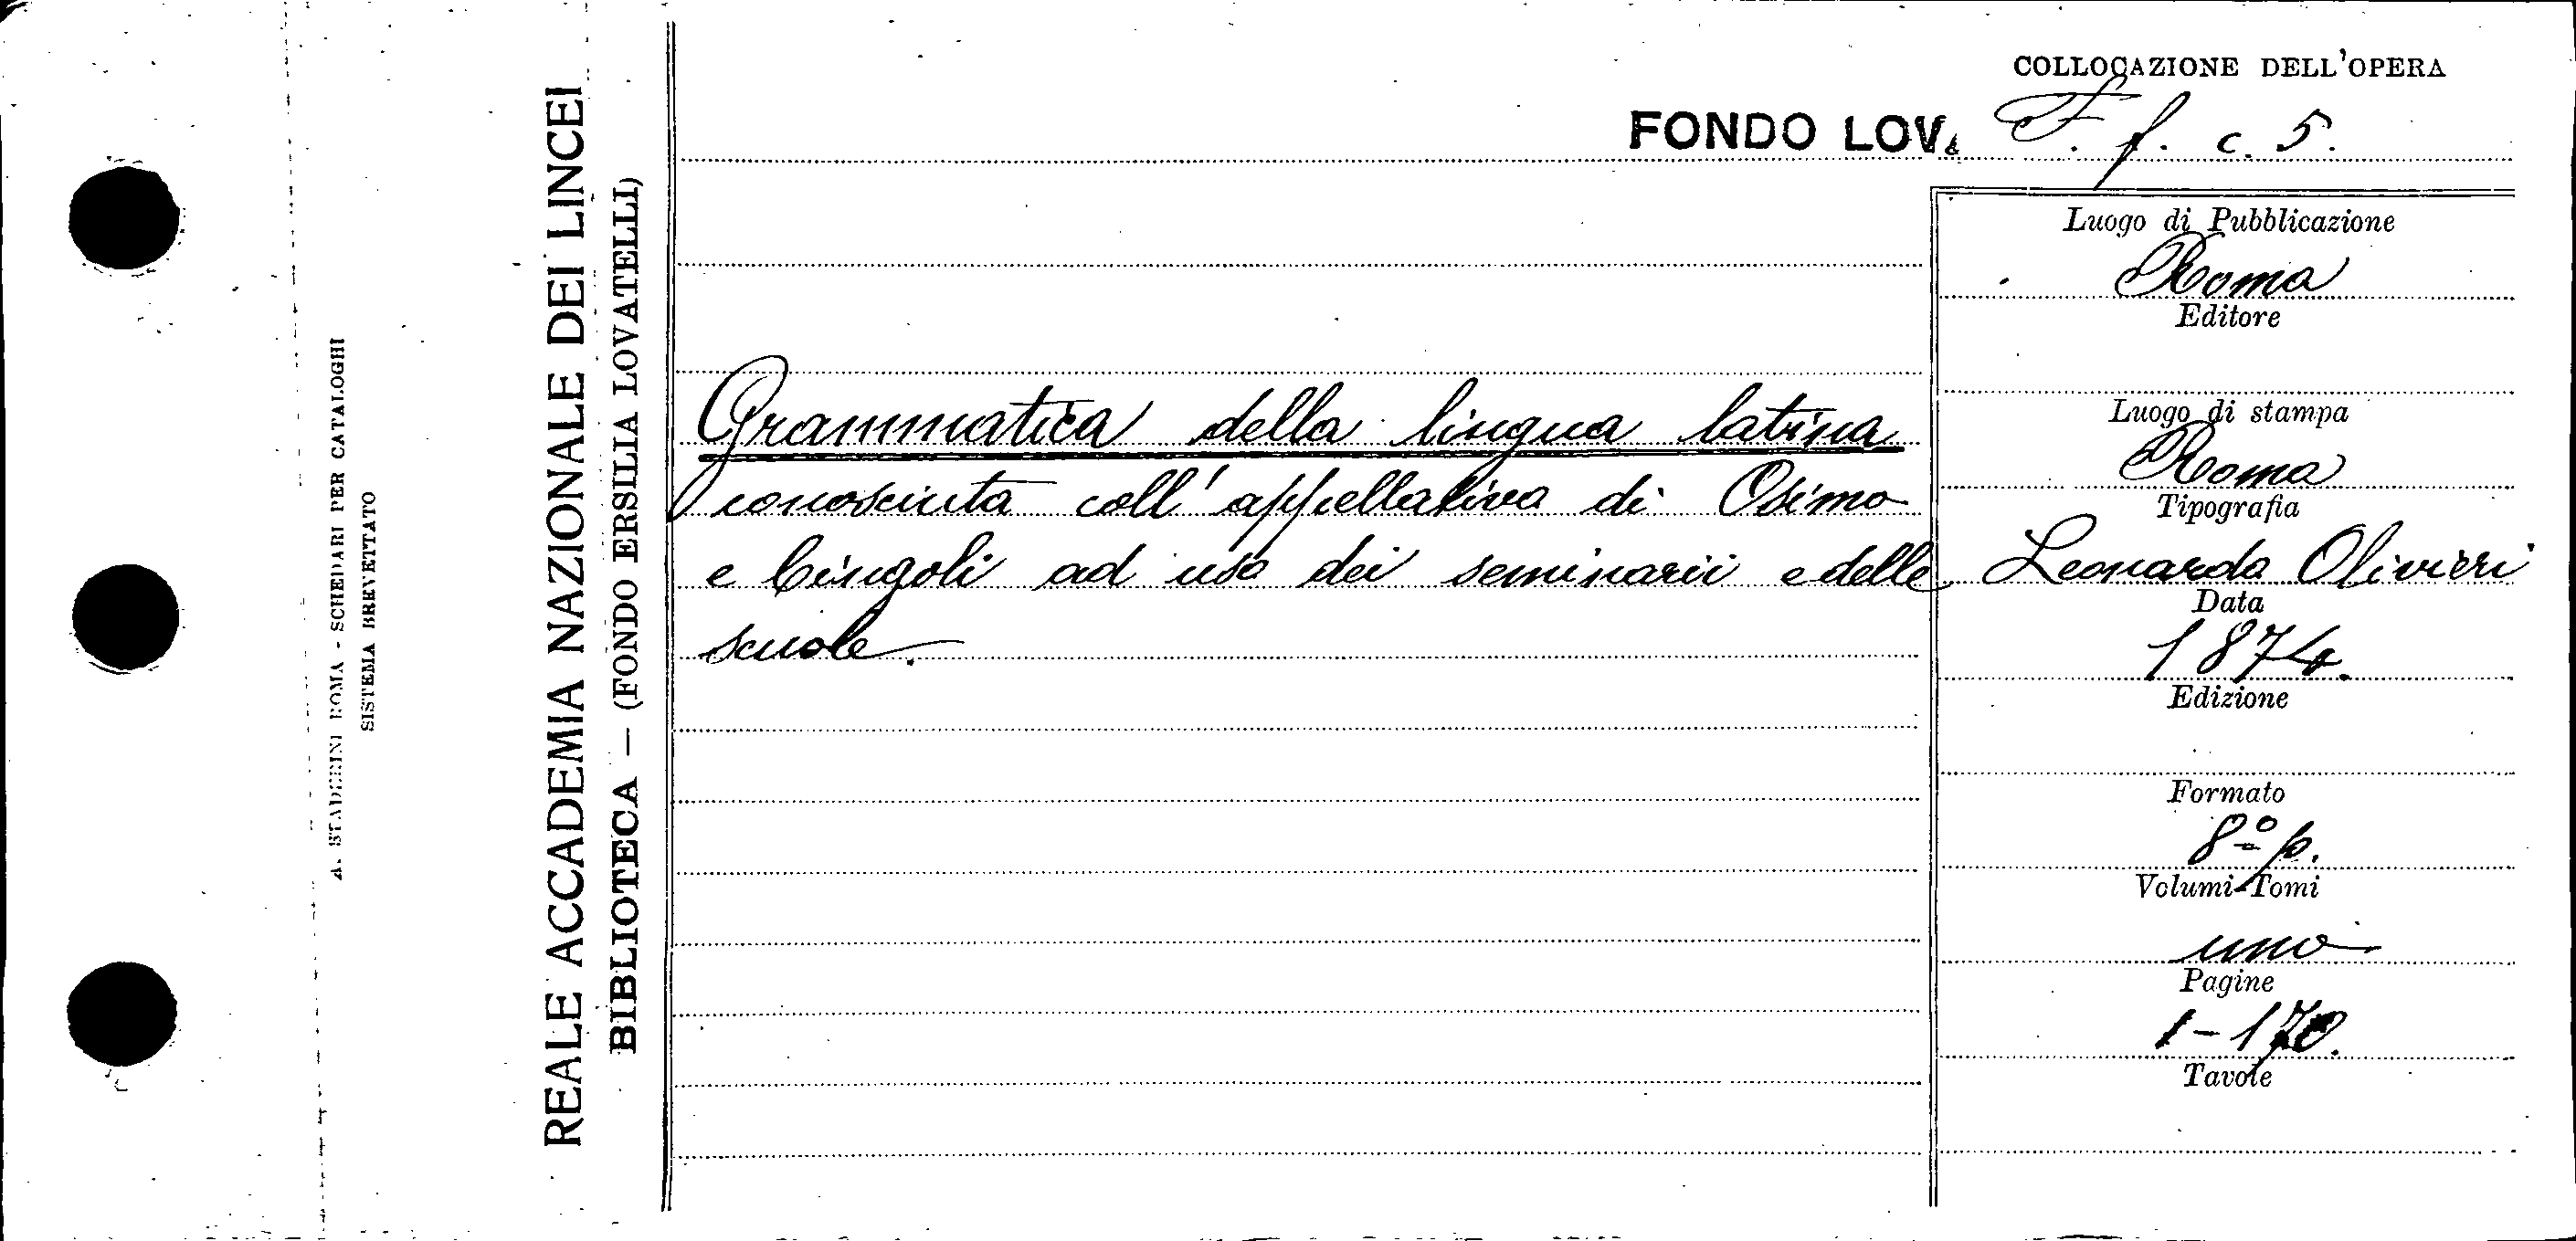 COLLOCAZIONE DELL'OPERA
FONDO LOV. F. f. c. 5.
Grammatica della lingua latina
conosciuta coll' appellativo di Osimo
e Cingoli ad uso dei seminarii e delle
scuole.
Luogo di Pubblicazione
Roma
Editore
Luogo di stampa
Roma
Tipografia
Leonardo Olivieri
Data
1874.
Edizione
Formato
8º p.
Volumi-Tomi
uno
Pagine
1-170.
Tavole
REALE ACCADEMIA NAZIONALE DEI LINCEI
BIBLIOTECA — (FONDO ERSILIA LOVATELLI)
A. STADERINI ROMA - SCHEDARI PER CATALOGHI
SISTEMA BREVETTATO